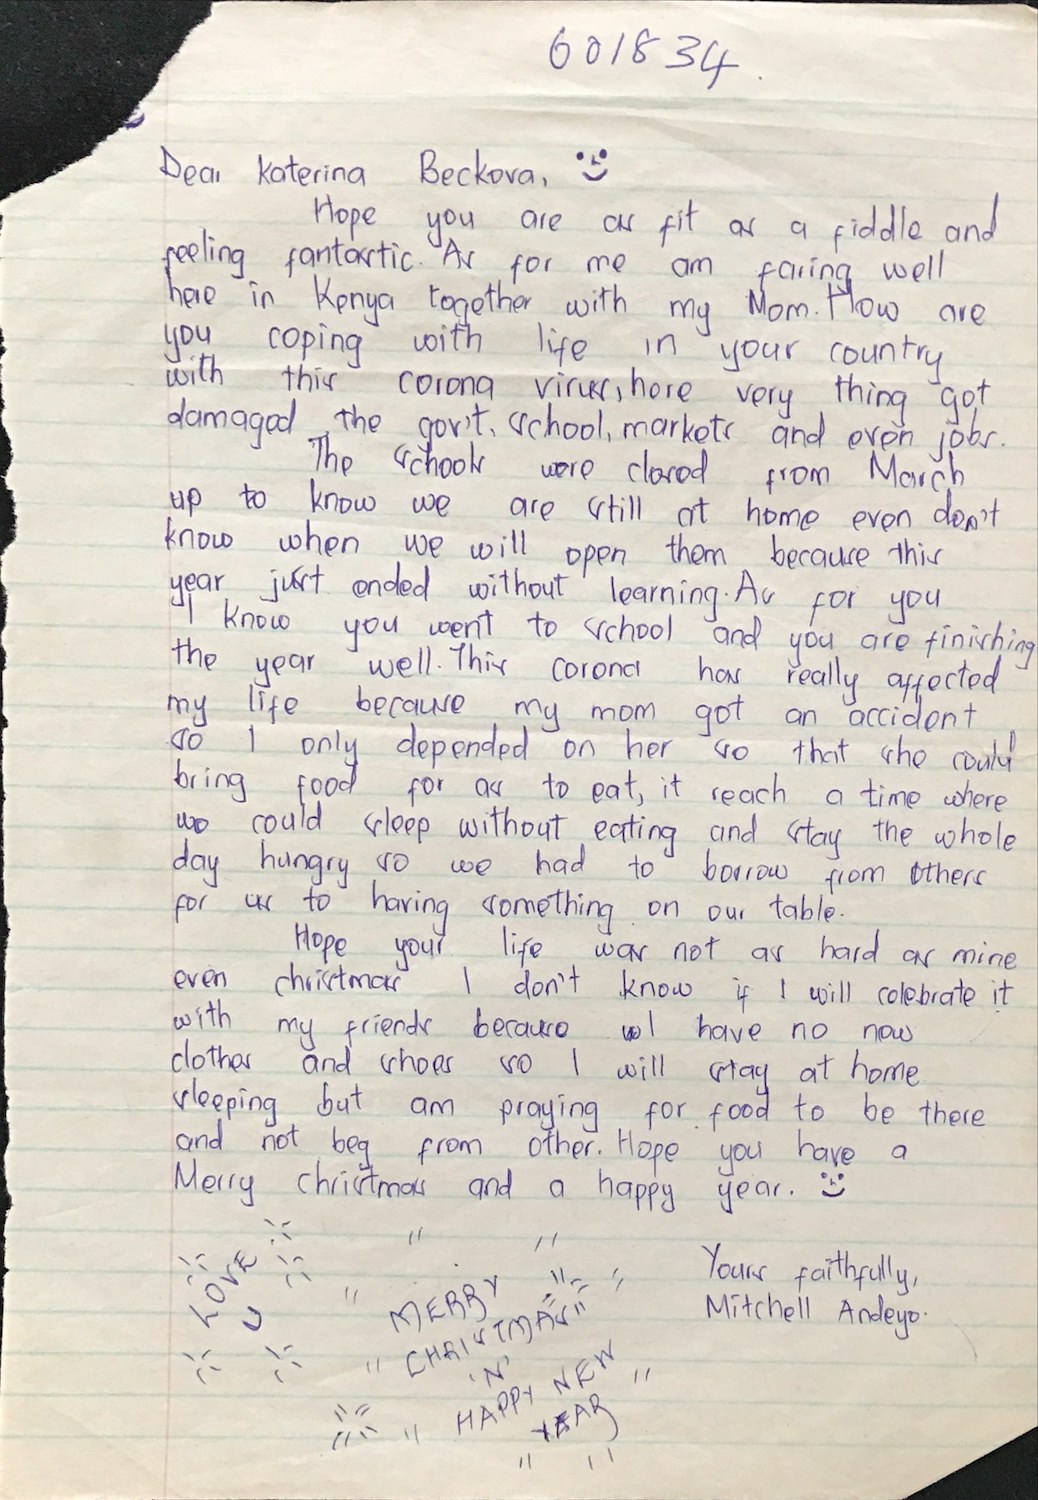 601834
Dear Katerina Beckova,
Hope you are as fit as a fiddle and
feeling fantastic. As for me am faring well
here in Kenya together with my Mom. How are
you coping with life in your country
with this corona virus, here very thing got
damaged the gov't, school, markets and even jobs.
The schools were closed from March
up to know we are still at home even don't
know when we will open them because this
year just ended without learning. As for you
I know you went to school and you are finishing
the year well. This corona has really affected
my life because my mom got an accident
so I only depended on her so that she could
bring food for as to eat, it reach a time where
we could sleep without eating and stay the whole
day hungry so we had to borrow from others
for us to having something on our table.
Hope your life was not as hard as mine
even christmas I don't know if I will celebrate it
with my friends because I have no new
clothes and shoes so I will stay at home
sleeping but am praying for food to be there
and not beg from other. Hope you have a
Merry christmas and a happy year.
Yours faithfully,
Mitchell Andeyo.
LOVE
U
MERRY
CHRISTMAS
'N'
HAPPY NEW
YEAR